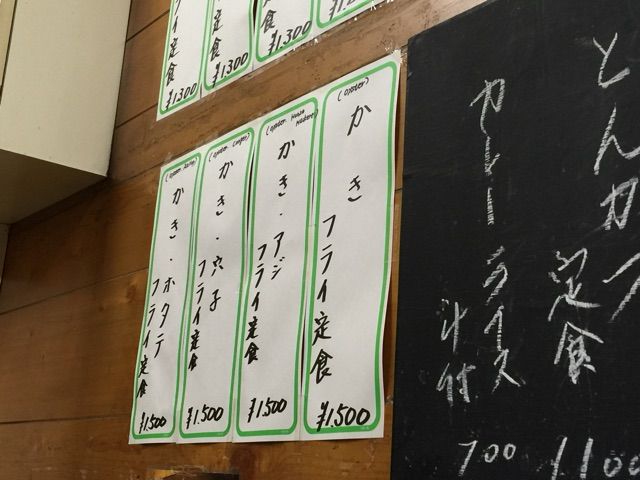 フライ定食
¥1.300
¥1.300
¥1.300
とんカツ
定食
1100
カレーライス
汁付
700
(oyster)
かき
フライ定食
¥1.500
かき・アジ
フライ定食
¥1.500
かき・穴子
フライ定食
¥1.500
かき・ホタテ
フライ定食
¥1.500